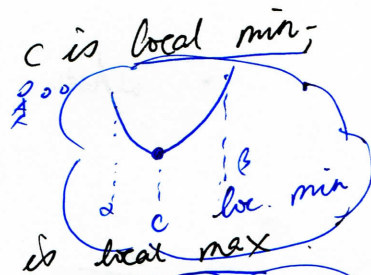 c is local min;
α
c
β
loc. min
is local max